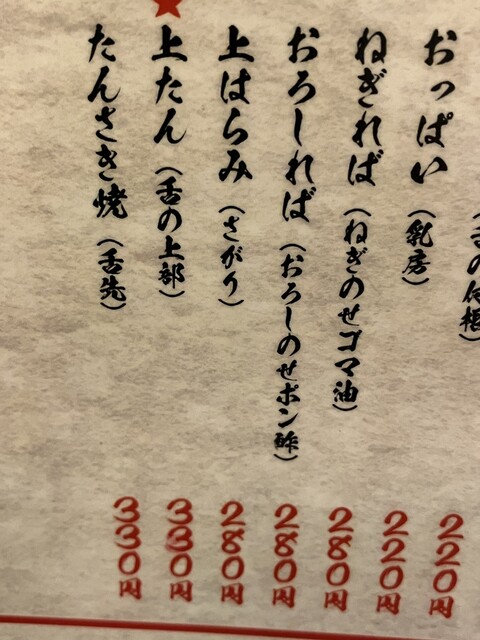 の付根) 220円
おっぱい(乳房) 220円
ねぎれば(ねぎのせゴマ油) 280円
おろしれば(おろしのせポン酢) 280円
上はらみ(さがり) 280円
★上たん(舌の上部) 330円
たんさき焼(舌先) 330円